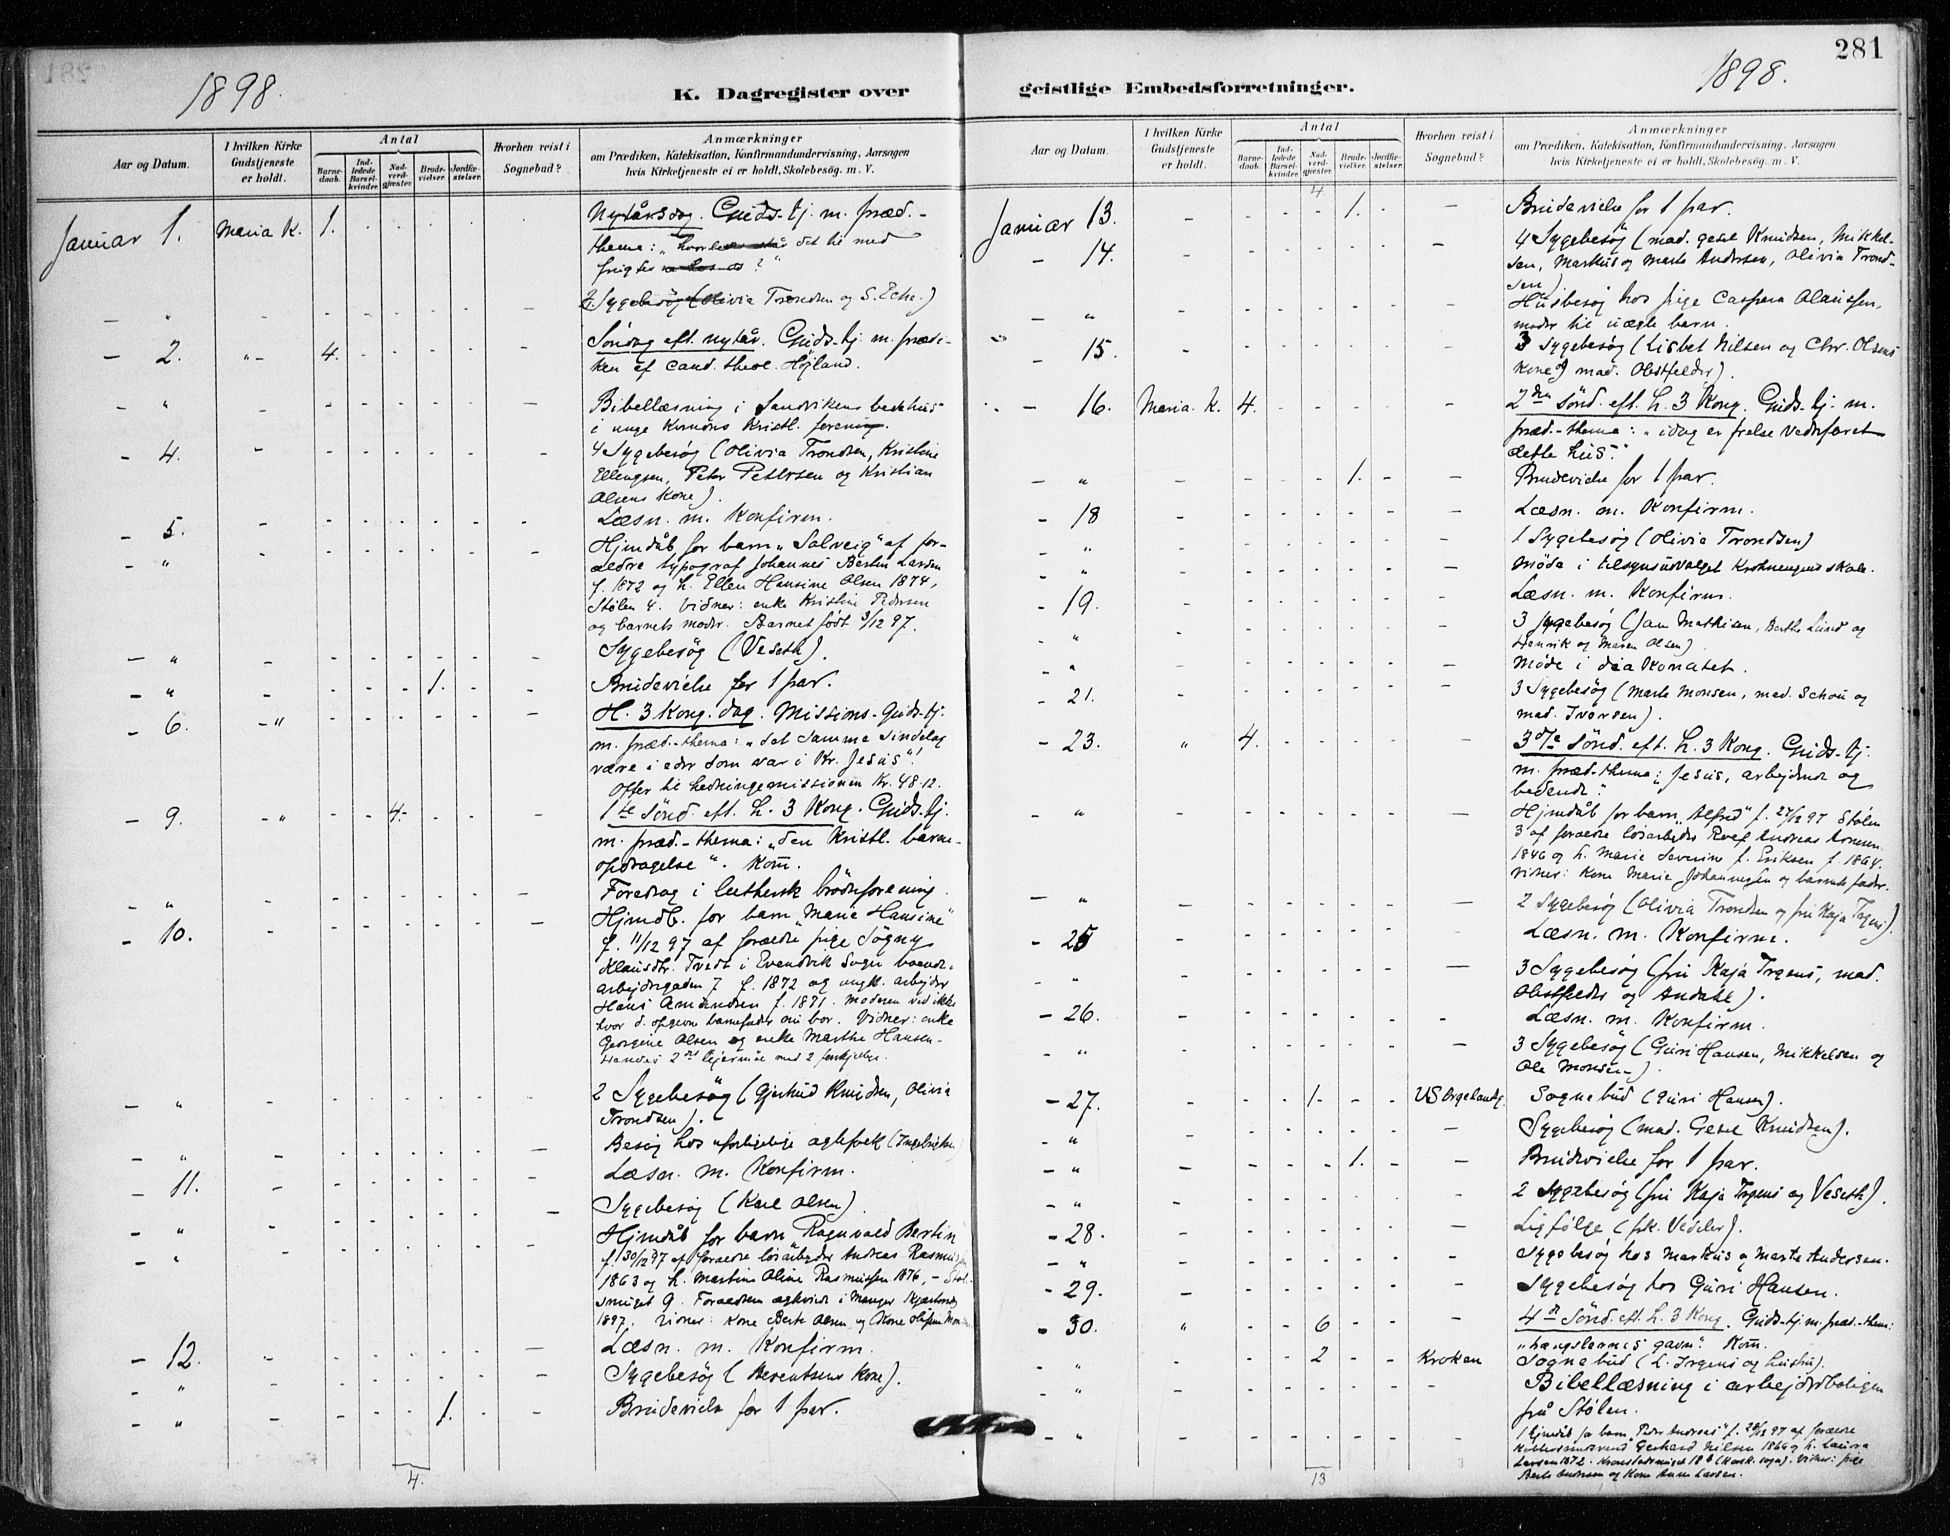 281
1898.
K. Dagregister over
Aar og Datum.
I hvilken Kirke Gudstjeneste er holdt.
Antal
Barnedaab.
Indledede Barselkvinder.
Nadverdgjæster.
Brudevielser.
Jordfæstelser.
Hvorhen reist i Sognebud?
Anmærkninger
om Prædiken, Katekisation, Konfirmandundervisning, Aarsagen
hvis Kirketjeneste ei er holdt, Skolebesøg. m. V.
Januar 1. Maria K. 1. Nytårsdag. Guds-tj. m. præd.-
thema: det til med
frygter ?"
2 Sygebesøg (Olivia Trondsen og S. Eche.)
- 2. "- 4. Søndag eft. nytår. Guds-tj. m. prædi-
ken af cand. theol. Højland.
- " Bibellæsning i Sandvikens bedehus
i unge Kvinders Kristl. forening.
- 4. 4 Sygebesøg (Olivia Trondsen, Kristine
Ellingsen, Peter Petersen og Kristian
Olsens Kone).
- 5. Læsn. m. Konfirm.
- " Hjmdåb for barn "Solveig" af for-
ældre typograf Johannes Bertin Larsen
f. 1872 og h. Ellen Hansine Olsen 1874,
Stølen 4. Vidner: enke Kristine Pedersen
og barnets moder. Barnet født 9/12 97.
- " Sygebesøg (Veseth).
- " 1. Brudevielse for 1 par.
- 6. -" H. 3 Kong. dag. Missions-Guds-tj.
m. præd.-thema: "det samme sindelag
være i eder som var i Kr. Jesus"!
Offer til hedningemissionen Kr. 48.12.
- 9. -" 4. 1ste Sønd. eft. h. 3 Kong. Guds-tj.
m. præd.-thema: "den Kristl. barne-
opdragelse". Kom.
- " Foredrag i luthersk brødreforening.
- 10. Hjmdb. for barn "Marie Hansine"
f. 11/12 97 af forældre pige Søgny
Klausdtr. Tvedt i Evendvik Sogn boende
arbejdergaden 7 f. 1872 og ungk. arbejder
Hans Amundsen f. 1871. moderen ved ikke
hvor d. opgivne barnefader nu bor. Vidner: enke
Georgine Olsen og enke Marthe Hansen-
Hendes 2det lejermål med 2 forskjellige.
- " 2 Sygebesøg (Gjertrud Knudsen, Olivia
Trondsen).
- " Besøg hos uforligelige ægtefolk (Ingebrigtsen)
- 11. Læsn. m. Konfirm.
- " Sygebesøg (Karl Olsen)
- " Hjmdåb for barn "Ragnvald Bertin"
f. 30/12 97 af forældre løsarbejder Andreas Rasmussen
1863 og h. Martine Oline Rasmussen 1876,
smuget 9. Forældrene ægteviede i Manger
1897. Vidner: Kone Berte Olsen og Kone
- 12. Læsn. m. Konfirm.
- " Sygebesøg ( Kone).
- " 1. Brudevielse for 1 par.
4.
geistlige Embedsforretninger.
1898.
Aar og Datum.
I hvilken Kirke Gudstjeneste er holdt.
Antal
Barnedaab.
Indledede Barselkvinder.
Nadverdgjæster.
Brudevielser.
Jordfæstelser.
Hvorhen reist i Sognebud?
Anmærkninger
om Prædiken, Katekisation, Konfirmandundervisning, Aarsagen
hvis Kirketjeneste ei er holdt, Skolebesøg. m. V.
4
Januar 13. 1. Brudevielse for 1 par.
- 14. 4 Sygebesøg (mad. Gesel Knudsen, Mikkel-
sen, Markus og Marte Andersen, Olivia Trond-
sen)
- " Husbesøg hos pige Caspara Olaussen,
moder til uægte barn.
- 15. 3 Sygebesøg (Lisbet Nilsen og Chr. Olsens
kone og mad. Obstfelder).
- 16. Maria. K. 4. 2den Sønd. eft. h. 3 Kong. Guds-tj. m.
præd.-thema: "idag er frelse vederfaret
dette hus."
- " 1. Brudevielse for 1 par.
- 18 Læsn. m. Konfirm.
- " 1 Sygebesøg (Olivia Trondsen)
- " Møde i tilsynsudvalget Krohnengens skole.
- 19. Læsn. m. Konfirm.
" 3 Sygebesøg (Jan Mathisen, Berthe Lund og
Henrik og Maren Olsen)
" Møde i diakonatet.
- 21. 3 Sygebesøg (Marte Monsen, mad. Schou og
mad. Iversen).
- 23. " 4. 3die Sønd. eft. h. 3 Kong. Guds-tj.
m. præd.-thema: Jesus, arbejdende og
bedende".
- " Hjmdåb for barn "Alfred" f. 27/12 97 Stølen
3 af forældre løsarbeider Andreas
1846 og h. Marie Severine f. Eriksen f. 1864.
Vidner: Kone Marie Johannesen og barnets fader.
- " 2 Sygebesøg (Olivia Trondsen og fru Kaja Irgens).
- 25 Læsn. m. Konfirm.
" 3 Sygebesøg (fru Kaja Irgens, mad.
Obstfelder og Andahl).
- 26. Læsn. m. Konfirm.
- " 3 Sygebesøg (Guri Hansen, Mikkelsen og
Ole Monsen-)
- 27. 1. Sognebud (Guri Hansen).
- " Sygebesøg (mad. Gesel Knudsen).
- " 1. Brudevielse for 1 par.
- " 2 Sygebesøg (fru Kaja Irgens og Veseth).
- 28. Ligfølge (frk. Vedeler).
- " Sygebesøg hos Markus og Marte Andersen.
- 29. Sygebesøg hos Guri Hansen.
- 30. " 6 4de Sønd. eft. h. 3 Kong. Guds-tj. m. præd.-them:
gavn". Kom.
2 Kroken Sognebud (h. Irgens og hustru).
- " Bibellæsning i arbejderboligen
på Stølen.
- " 1 Hjmdåb for barn "Peder Andreas" f. 28/12 97 af forældre
Gerhard Nilsen 1866 og h. Laura
Larsen 1872. 18 b (Kors k. sogn). Vidner: pige
Berte Andersen og Kone Anne Larsen.
13